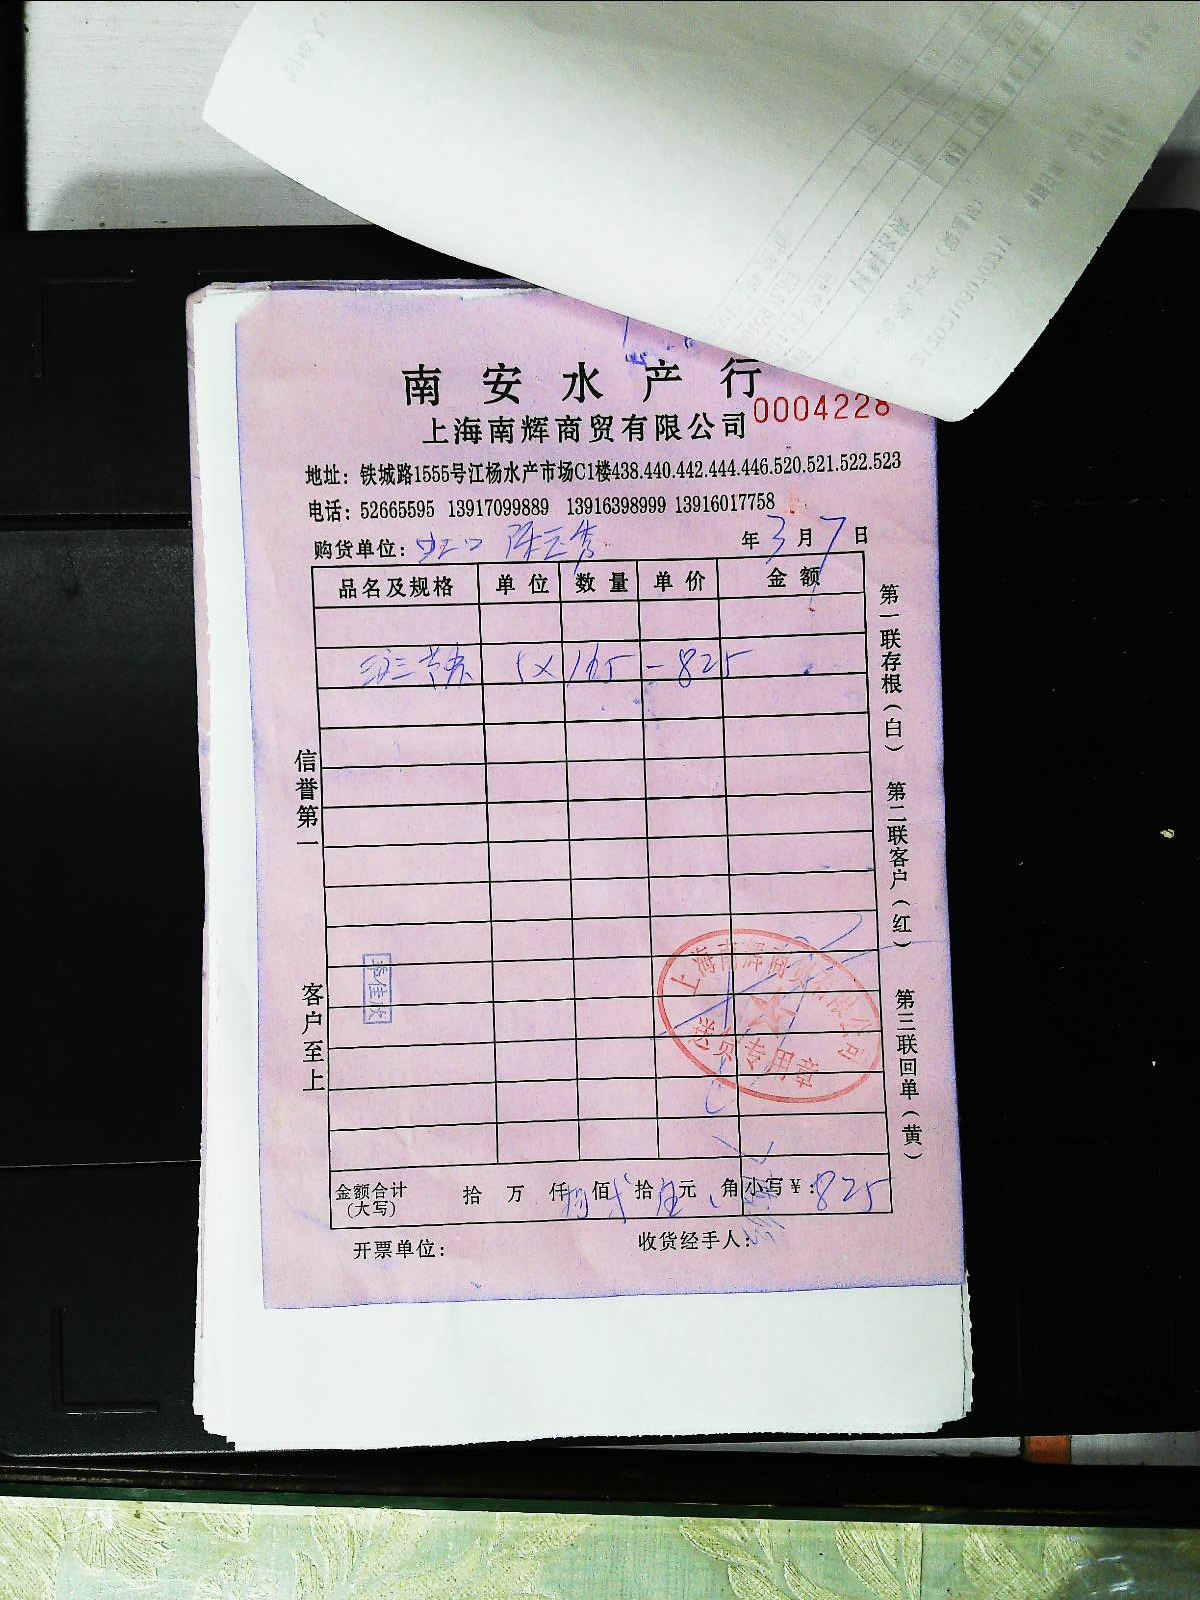 南安水产行
上海南辉商贸有限公司 0004228
地址：铁城路1555号江杨水产市场C1楼438.440.442.444.446.520.521.522.523
电话：52665595 13917099889 13916398999 13916017758
购货单位： 年3月7日
品名及规格 单位 数量 单价 金额
5×165=825
信誉第一
客户至上
第一联存根（白）
第二联客户（红）
第三联回单（黄）
上海南辉商贸有限公司
送货专用章
金额合计（大写） 拾 万 仟 捌佰 贰拾 伍元 角 小写￥：825
开票单位： 收货经手人：